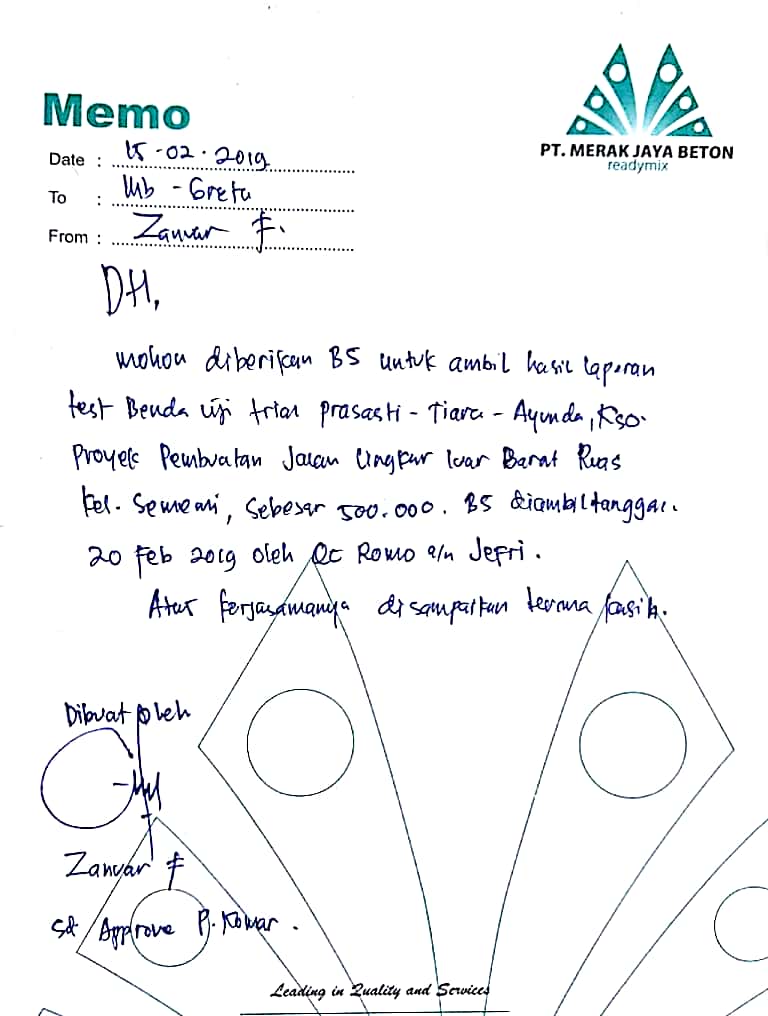 Memo
PT. MERAK JAYA BETON
readymix
Date : 15-02-2019
To : Mb - Greta
From : Zanuar F.
DH,
mohon diberikan BS untuk ambil hasil laporan
test Benda uji trial prasasti - Tiara - Ayunda, KSO.
Proyek Pembuatan Jalan Lingkar luar Barat Ruas
kel. Sememi, sebesar 500.000. BS diambil tanggal.
20 Feb 2019 oleh QC Romo a/n Jefri.
Atas kerjasamanya disampaikan terima kasih.
Dibuat oleh
Zanuar F
Approve P.
Leading in Quality and Services